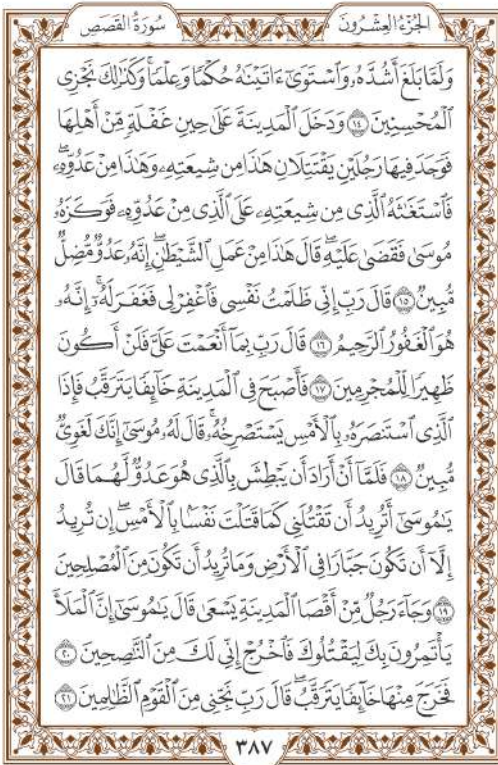 الجُزْءُ العِشْرُونَ سُورَةُ القَصَصِ
وَلَمَّا بَلَغَ أَشُدَّهُۥ وَٱسْتَوَىٰٓ ءَاتَيْنَٰهُ حُكْمًا وَعِلْمًاۚ وَكَذَٰلِكَ نَجْزِى
ٱلْمُحْسِنِينَ ١٤ وَدَخَلَ ٱلْمَدِينَةَ عَلَىٰ حِينِ غَفْلَةٍ مِّنْ أَهْلِهَا
فَوَجَدَ فِيهَا رَجُلَيْنِ يَقْتَتِلَانِ هَٰذَا مِن شِيعَتِهِۦ وَهَٰذَا مِنْ عَدُوِّهِۦۖ
فَٱسْتَغَٰثَهُ ٱلَّذِى مِن شِيعَتِهِۦ عَلَى ٱلَّذِى مِنْ عَدُوِّهِۦ فَوَكَزَهُۥ
مُوسَىٰ فَقَضَىٰ عَلَيْهِۖ قَالَ هَٰذَا مِنْ عَمَلِ ٱلشَّيْطَٰنِۖ إِنَّهُۥ عَدُوٌّ مُّضِلٌّ
مُّبِينٌ ١٥ قَالَ رَبِّ إِنِّى ظَلَمْتُ نَفْسِى فَٱغْفِرْ لِى فَغَفَرَ لَهُۥٓۚ إِنَّهُۥ
هُوَ ٱلْغَفُورُ ٱلرَّحِيمُ ١٦ قَالَ رَبِّ بِمَآ أَنْعَمْتَ عَلَىَّ فَلَنْ أَكُونَ
ظَهِيرًا لِّلْمُجْرِمِينَ ١٧ فَأَصْبَحَ فِى ٱلْمَدِينَةِ خَآئِفًا يَتَرَقَّبُ فَإِذَا
ٱلَّذِى ٱسْتَنصَرَهُۥ بِٱلْأَمْسِ يَسْتَصْرِخُهُۥۚ قَالَ لَهُۥ مُوسَىٰٓ إِنَّكَ لَغَوِىٌّ
مُّبِينٌ ١٨ فَلَمَّآ أَنْ أَرَادَ أَن يَبْطِشَ بِٱلَّذِى هُوَ عَدُوٌّ لَّهُمَا قَالَ
يَٰمُوسَىٰٓ أَتُرِيدُ أَن تَقْتُلَنِى كَمَا قَتَلْتَ نَفْسًۢا بِٱلْأَمْسِۖ إِن تُرِيدُ
إِلَّآ أَن تَكُونَ جَبَّارًا فِى ٱلْأَرْضِ وَمَا تُرِيدُ أَن تَكُونَ مِنَ ٱلْمُصْلِحِينَ
١٩ وَجَآءَ رَجُلٌ مِّنْ أَقْصَا ٱلْمَدِينَةِ يَسْعَىٰ قَالَ يَٰمُوسَىٰٓ إِنَّ ٱلْمَلَأَ
يَأْتَمِرُونَ بِكَ لِيَقْتُلُوكَ فَٱخْرُجْ إِنِّى لَكَ مِنَ ٱلنَّٰصِحِينَ ٢٠
فَخَرَجَ مِنْهَا خَآئِفًا يَتَرَقَّبُۖ قَالَ رَبِّ نَجِّنِى مِنَ ٱلْقَوْمِ ٱلظَّٰلِمِينَ ٢١
٣٨٧